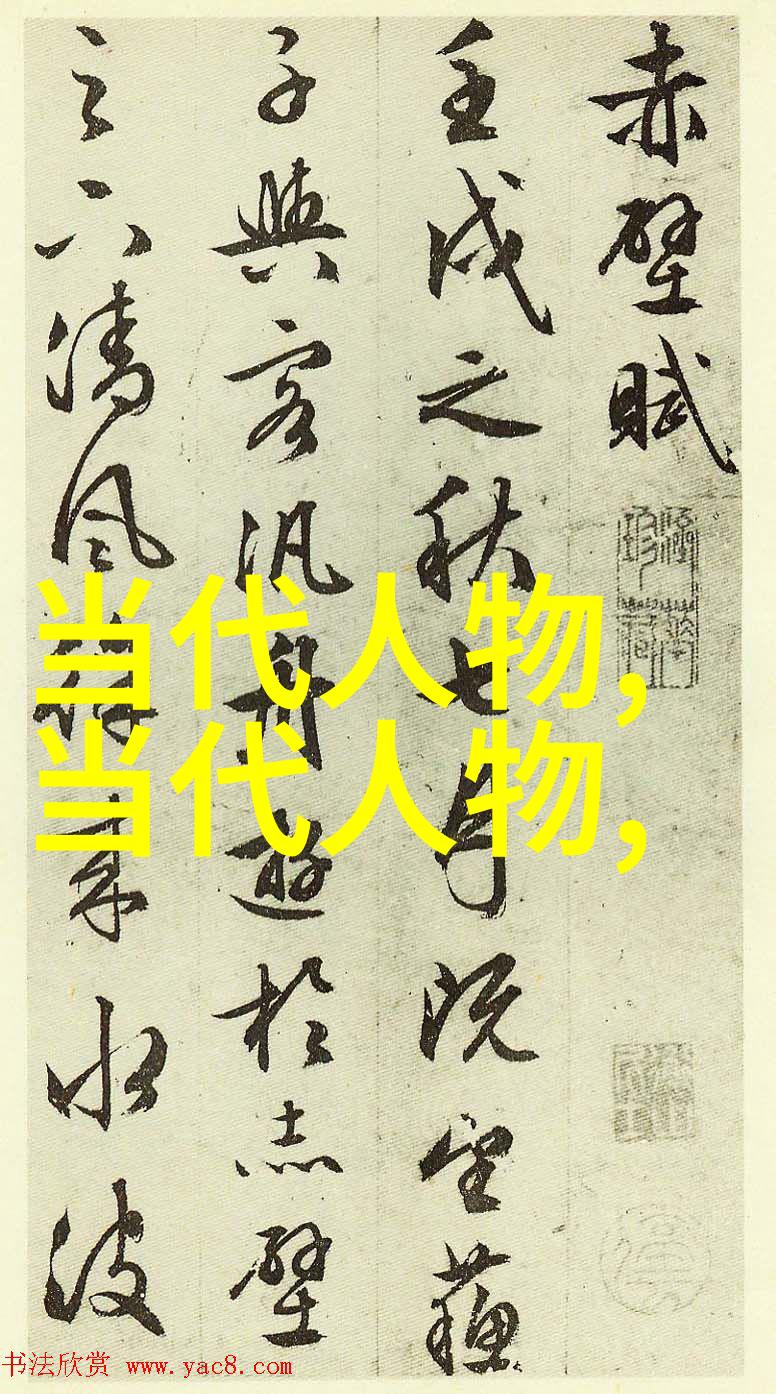 赤壁賦
壬戌之秋七月既望蘇
子與客汎舟遊於赤壁
之下清風徐來水波
当代人物,
当代人物,
书法欣赏 www.yac8.com